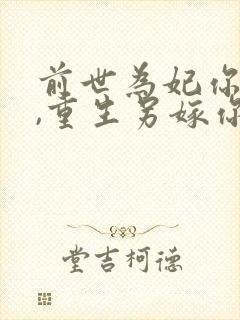 前世為妃你
,重生另嫁你
堂吉柯德